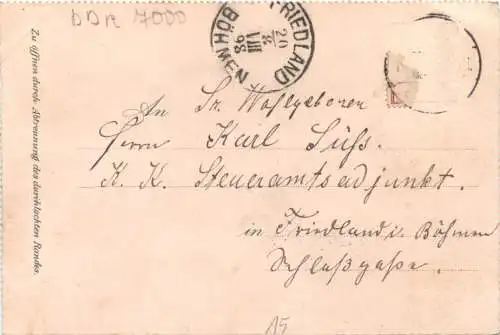 DDR 7000
FRIEDLAND
20
8
VIII
98
BÖHMEN
An Sr. Wohlgeboren
Herrn Karl Süß.
K. K. Steueramtsadjunkt.
in Friedland i. Böhmen
Schloßgaße.
15
Zu öffnen durch Abtrennung des durchlochten Randes.